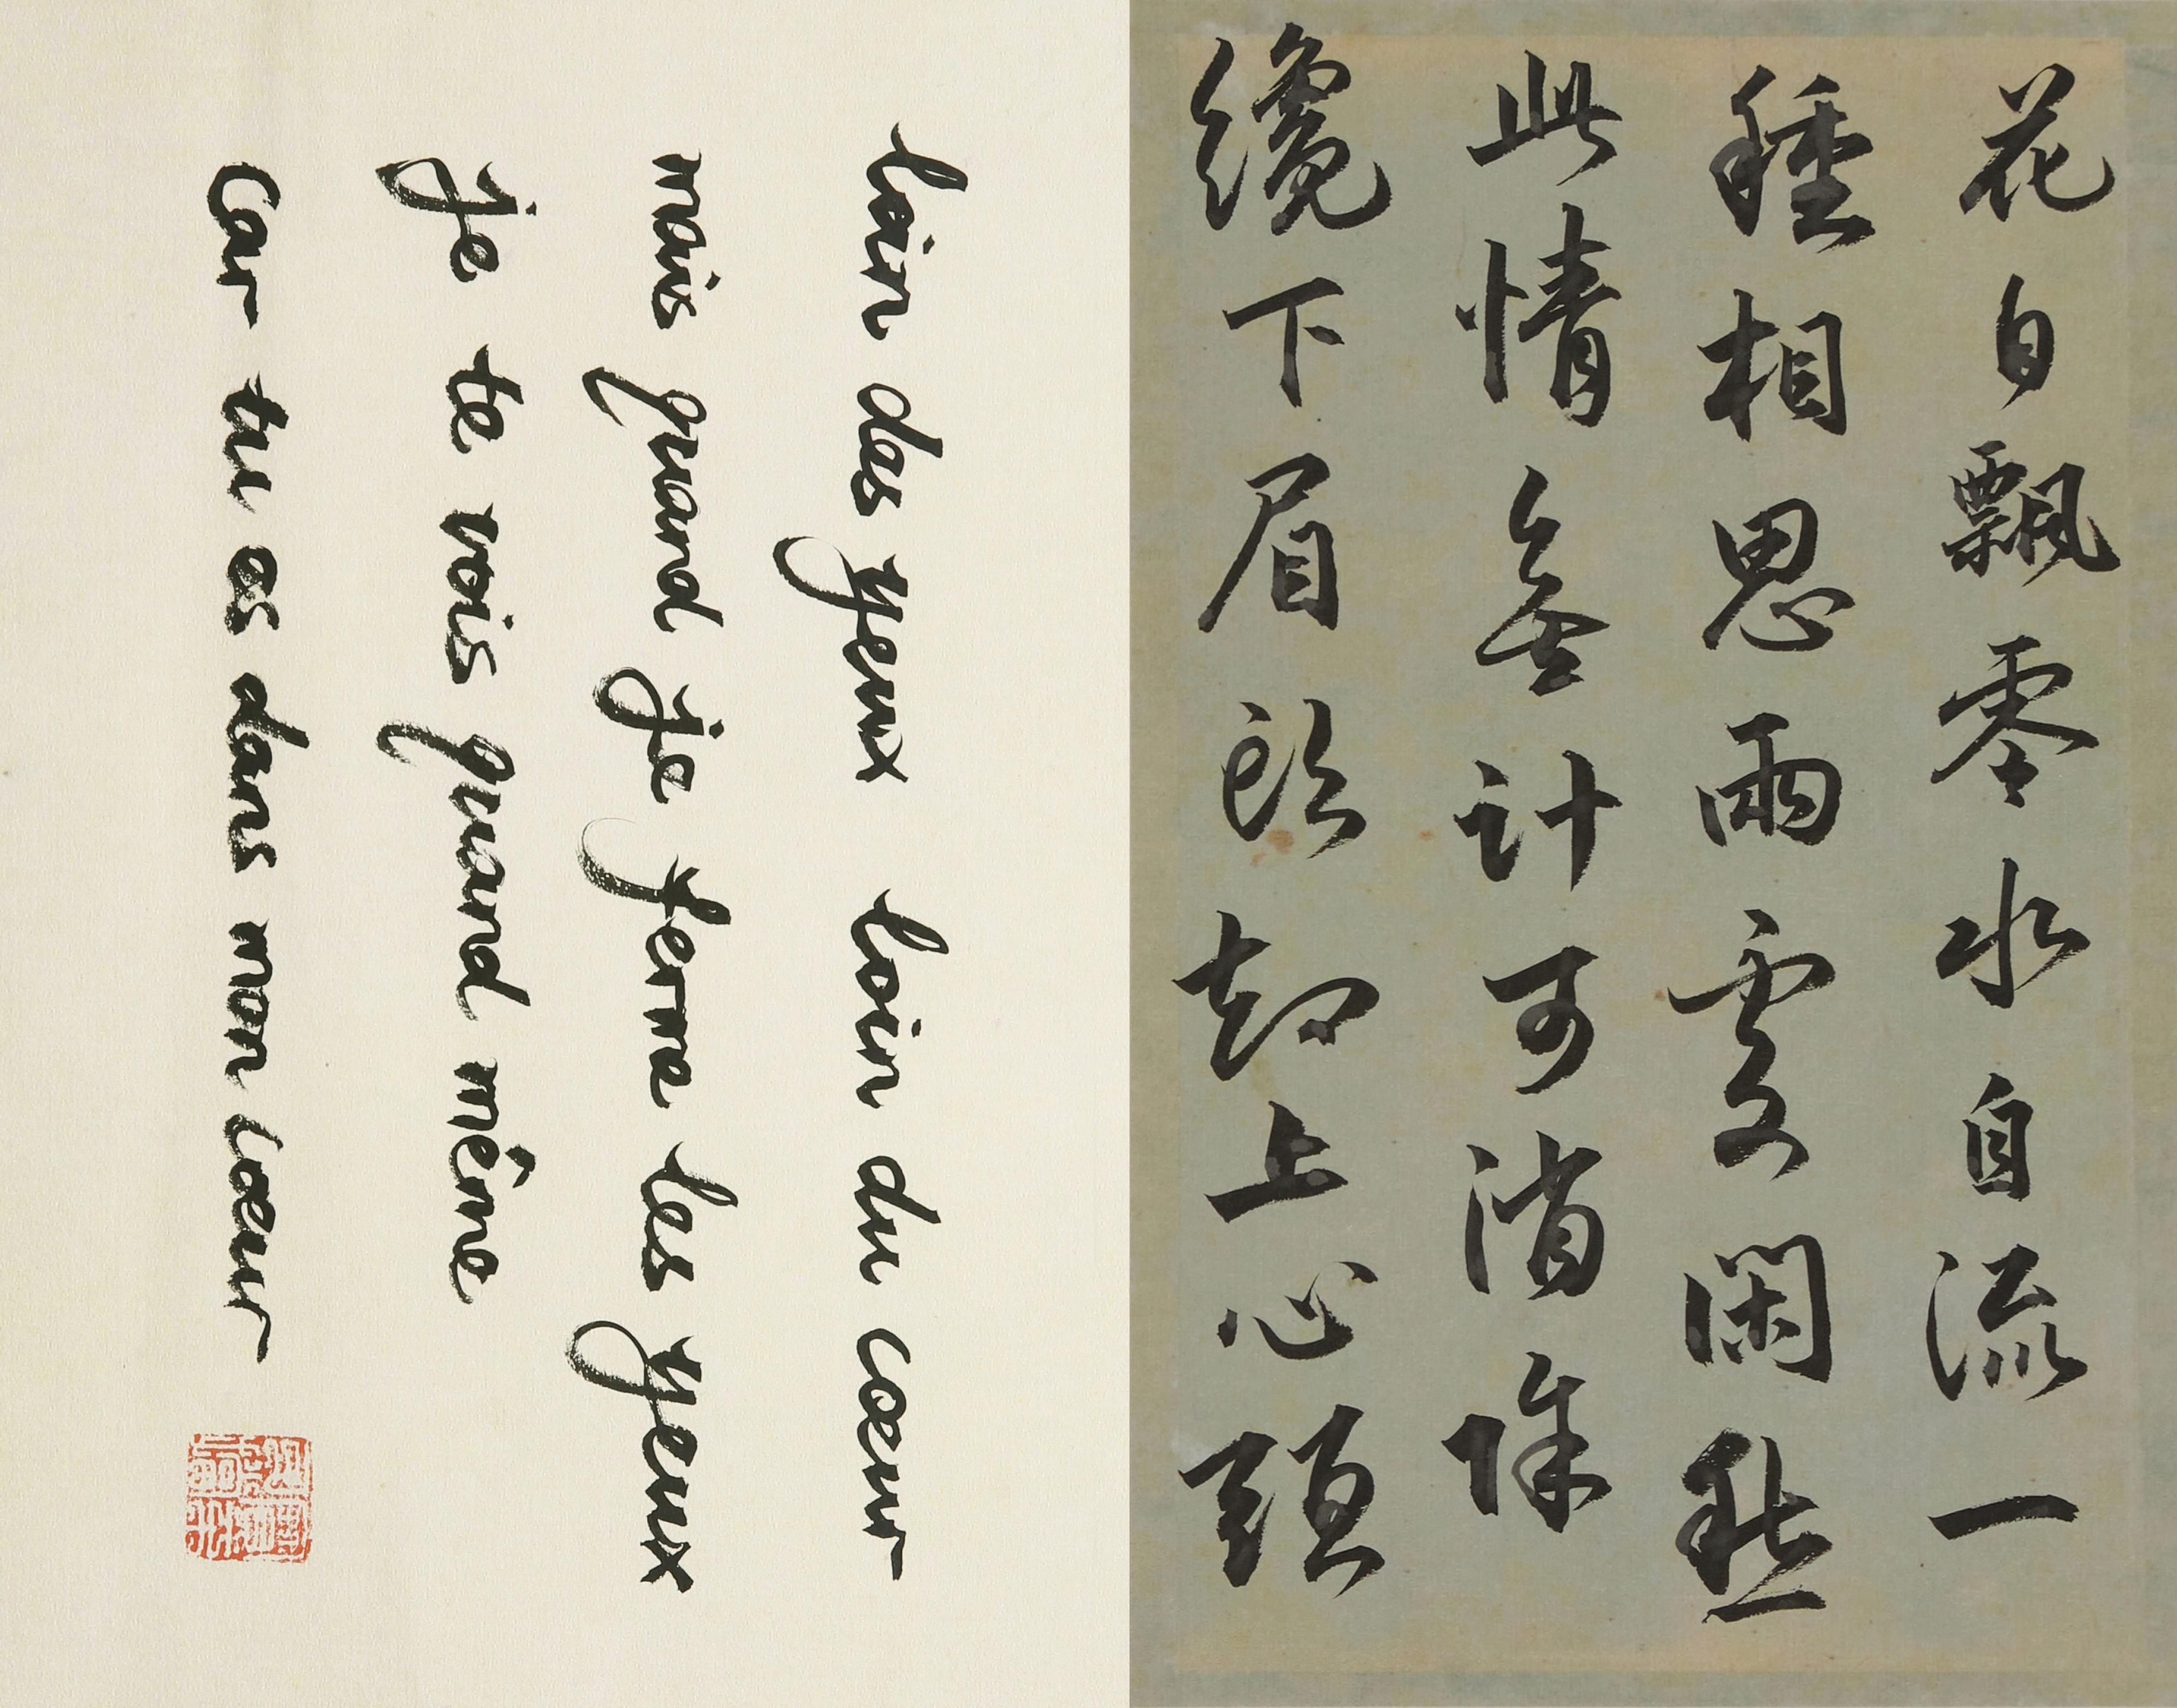 花自飄零水自流一
種相思兩處閑愁
此情無計可消除
纔下眉頭却上心頭
loin des yeux loin du cœur
mais quand je ferme les yeux
je te vois quand même
car tu es dans mon cœur